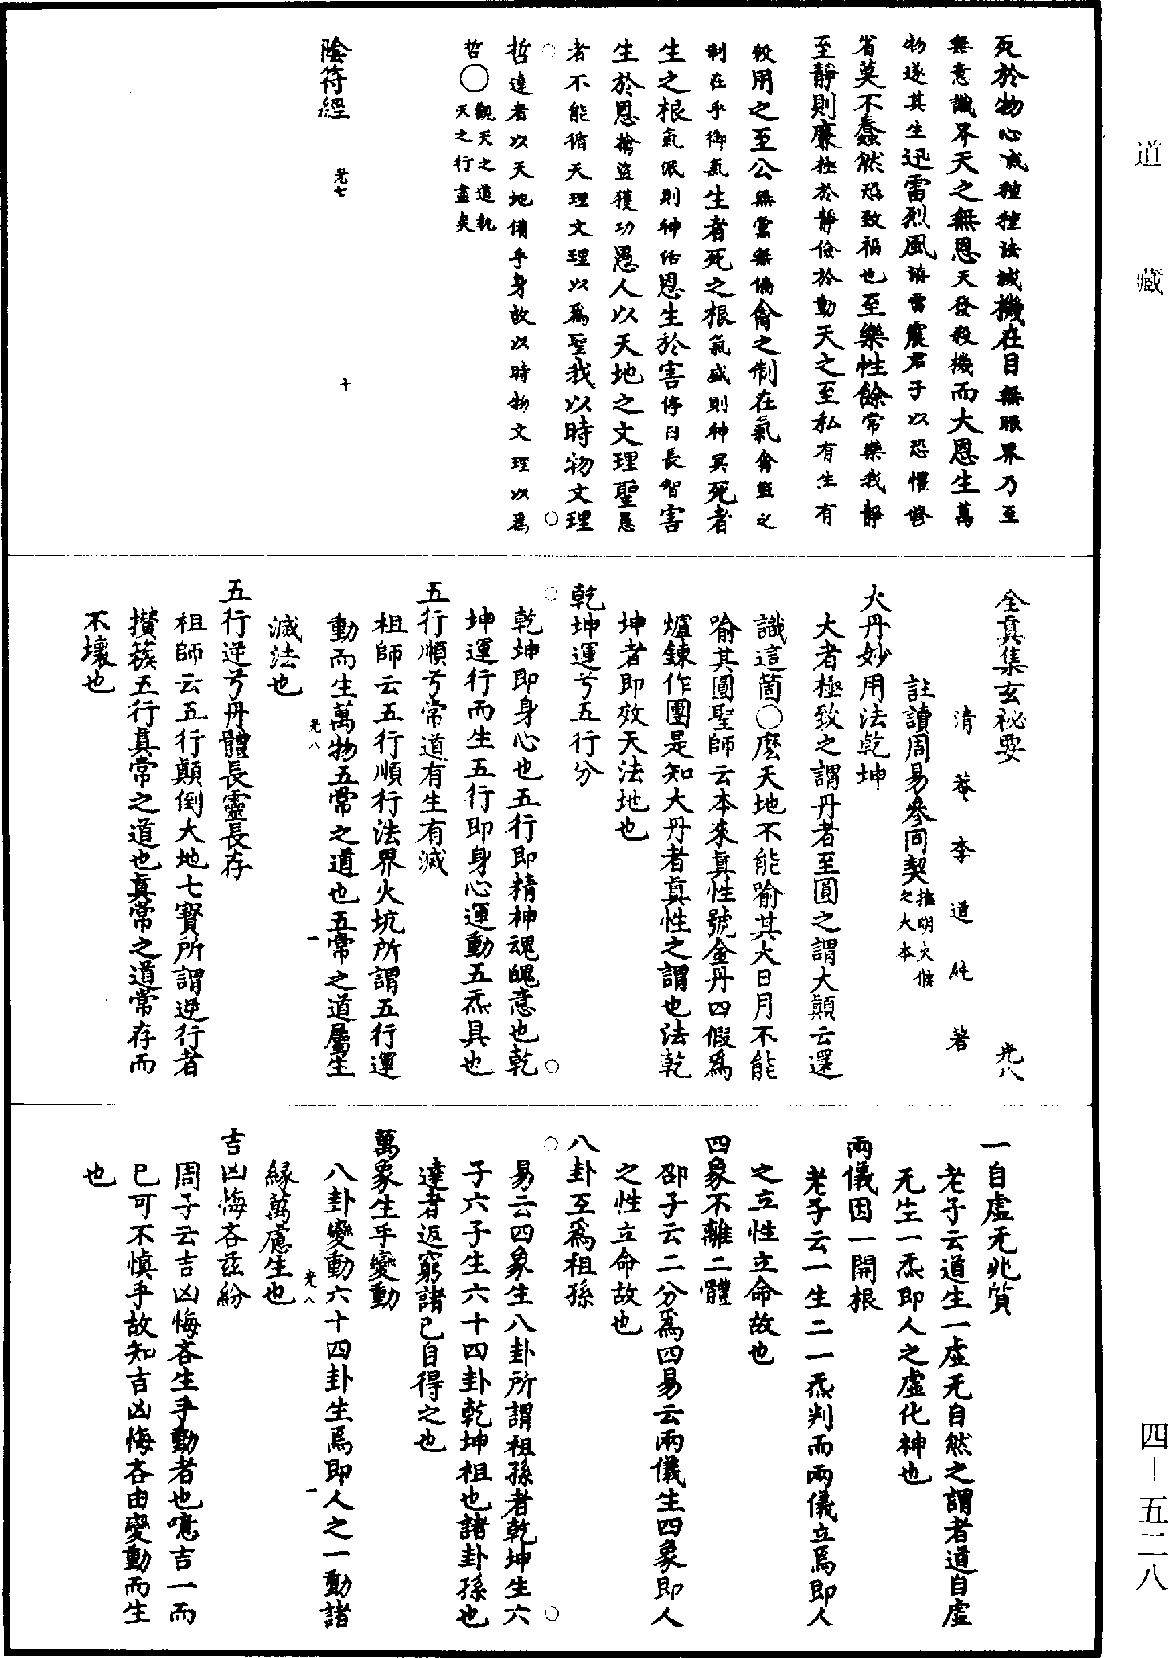 道藏
四—五二八
死於物心滅種種法滅機在目無眼界乃至
無意識界天之無恩天發殺機而大恩生萬
物遂其生迅雷烈風講雷震君子以恐懼脩
省莫不蠢然恐致福也至樂性餘常樂我靜
至靜則廉極於靜儉於動天之至私有生有
殺用之至公無黨無偏禽之制在氣禽盜之
制在乎御氣生者死之根氣盛則神昊死者
生之根氣派則神活恩生於害侍日長智害
生於恩擒盜獲功愚人以天地之文理聖愚
者不能循天理文理以爲聖我以時物文理
哲達者以天地備乎身故以時物文理以爲
哲○觀天之道執
天之行盡矣
陰符經 光七 十
全真集玄祕要 光八
清菴李道純著
註讀周易參同契推明火候之大本
大丹妙用法乾坤
大者極致之謂丹者至圓之謂大顛云還
識這箇○麽天地不能喻其大日月不能
喻其圓聖師云本來真性號金丹四假爲
爐鍊作團是知大丹者真性之謂也法乾
坤者即效天法地也
乾坤運兮五行分
乾坤即身心也五行即精神魂魄意也乾
坤運行而生五行即身心運動五炁具也
五行順兮常道有生有滅
祖師云五行順行法界火坑所謂五行運
動而生萬物五常之道也五常之道屬生
光八 一
滅法也
五行逆兮丹體長靈長存
祖師云五行顛倒大地七寳所謂逆行者
攢蔟五行真常之道也真常之道常存而
不壞也
一自虛无兆質
老子云道生一虛无自然之謂者道自虛
无生一炁即人之虛化神也
兩儀因一開根
老子云一生二一炁判而兩儀立焉即人
之立性立命故也
四象不離二體
邵子云二分爲四易云兩儀生四象即人
之性立命故也
八卦互爲祖孫
易云四象生八卦所謂祖孫者乾坤生六
子六子生六十四卦乾坤祖也諸卦孫也
達者返窮諸己自得之也
萬象生乎變動
八卦變動六十四卦生焉即人之一動諸
光八 一
緣萬慮生也
吉凶悔吝茲紛
周子云吉凶悔吝生乎動者也噫吉一而
已可不慎乎故知吉凶悔吝由變動而生
也